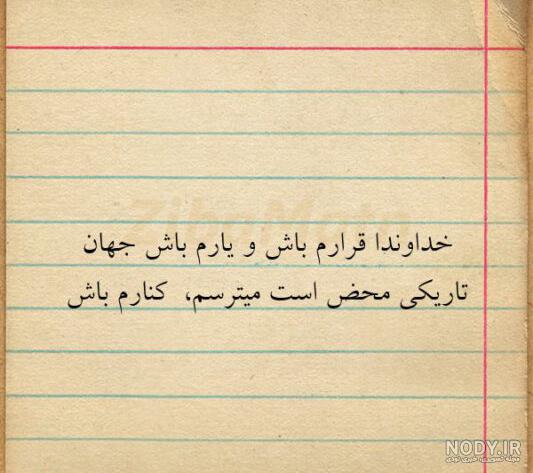 خداوندا قرارم باش و یارم باش جهان
تاریکی محض است میترسم، کنارم باش
NODY.IR